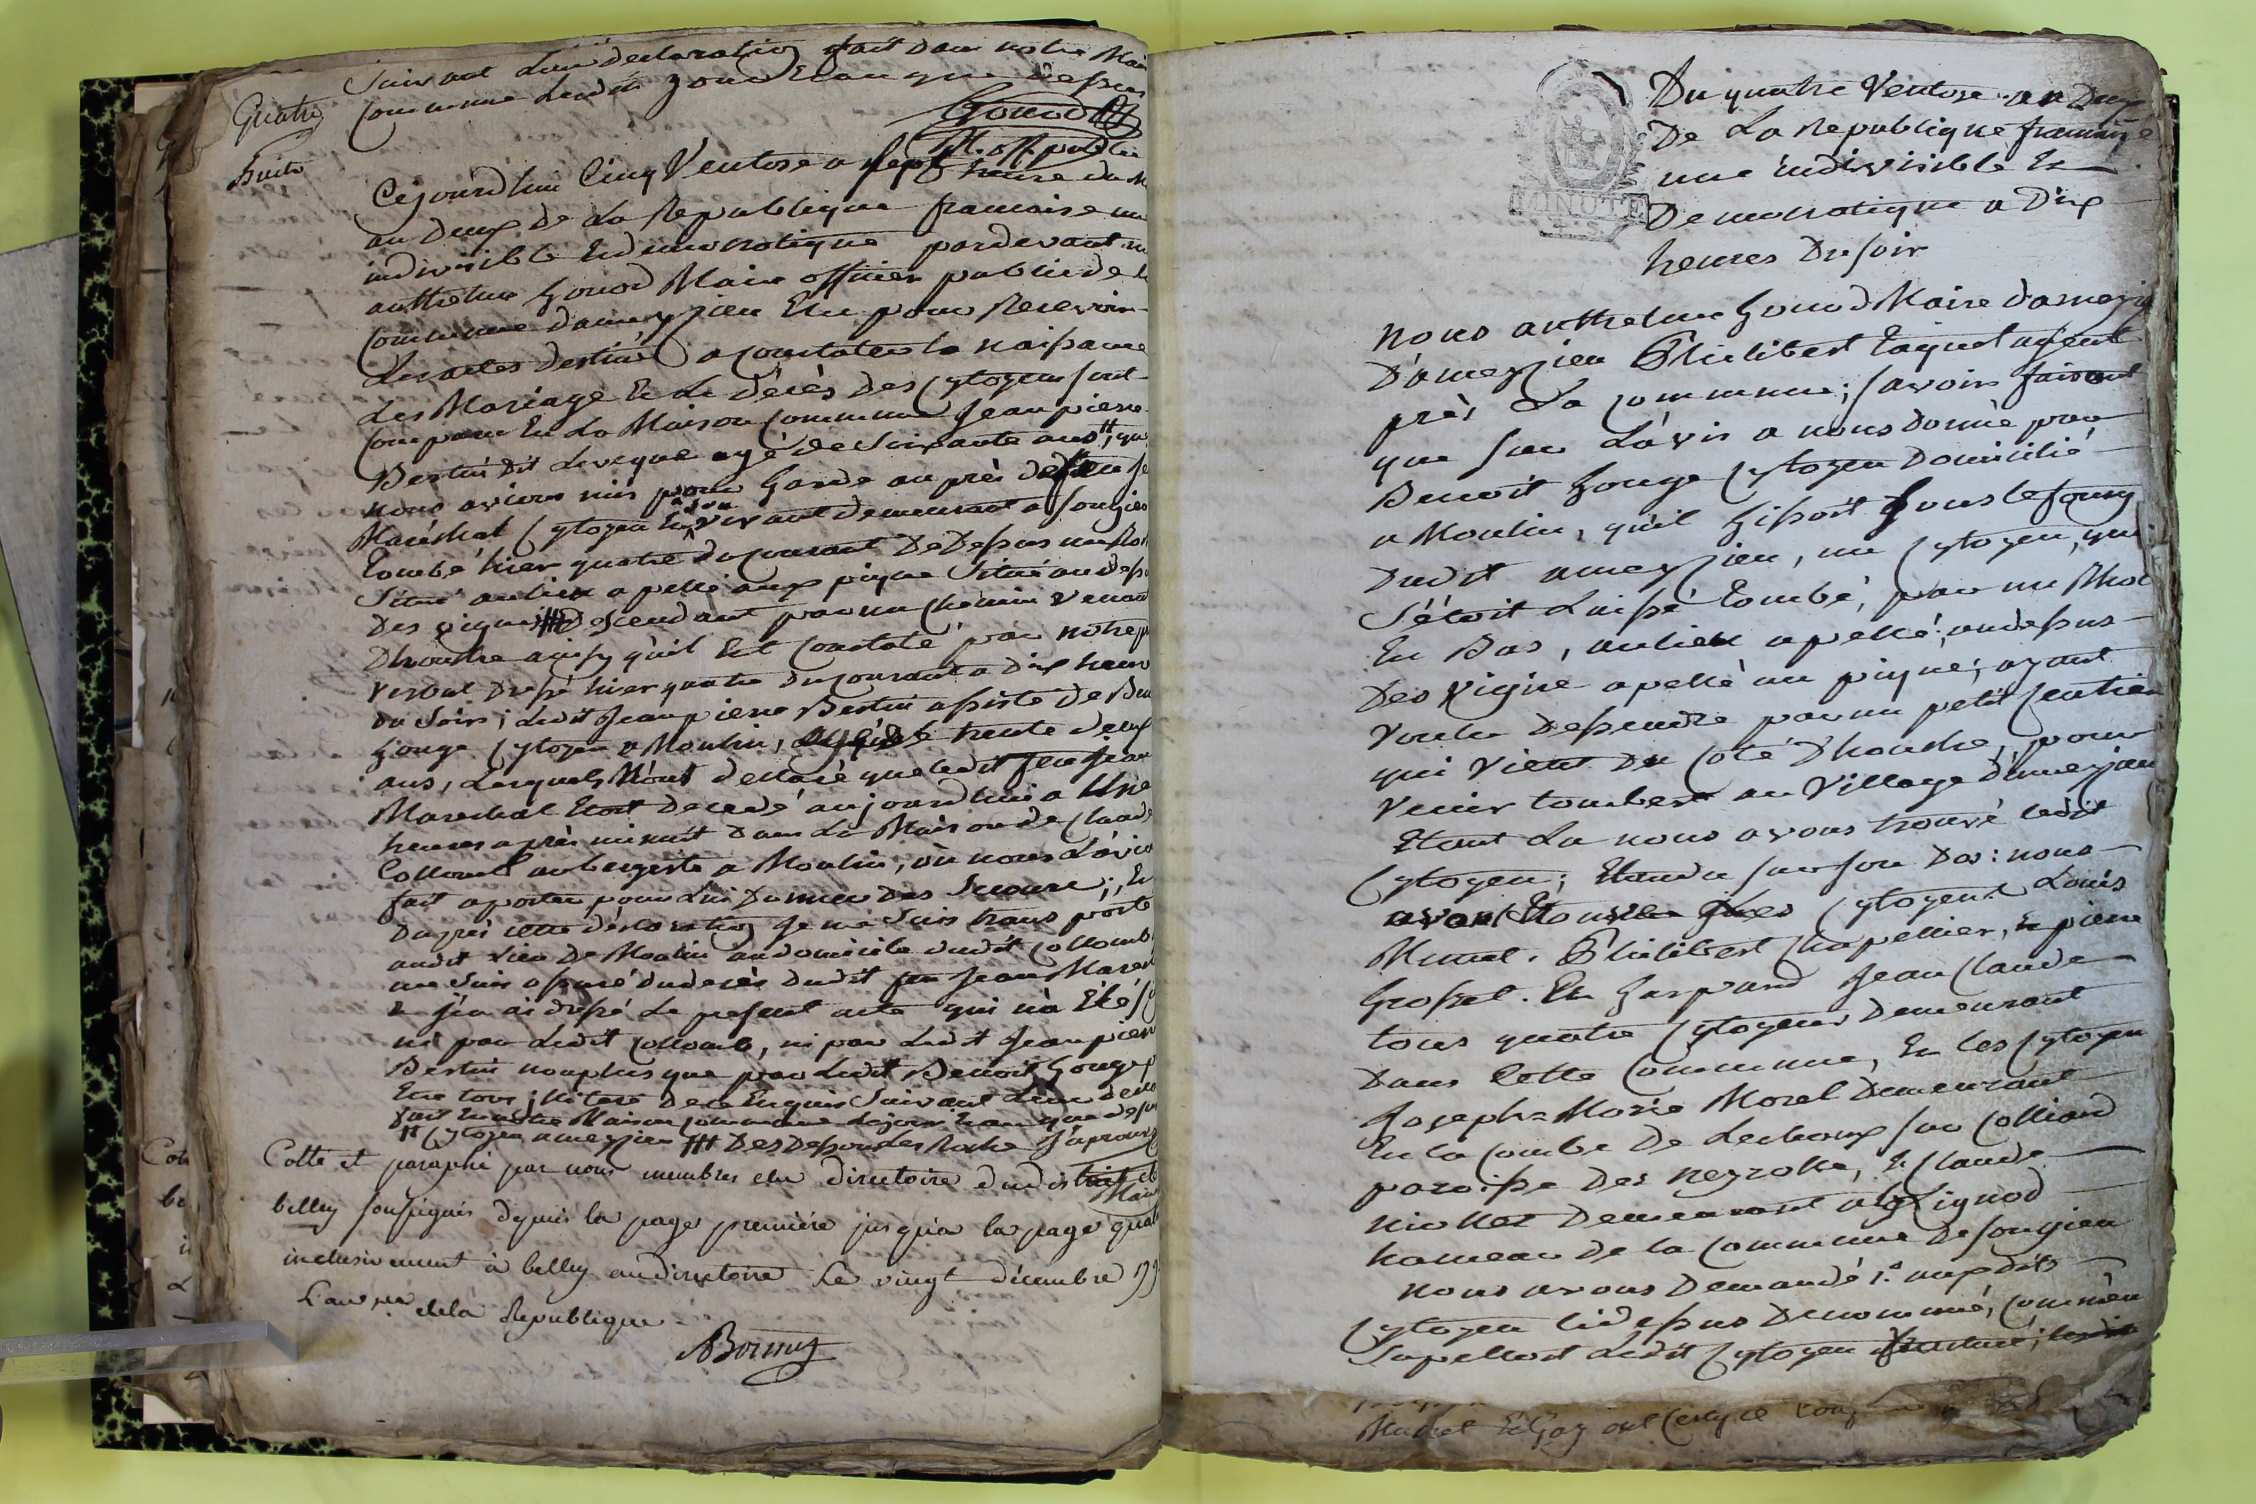 Suivant Leur declaration fait dans nostre Mai
Commune Ledit jour Et an que dessus
Gonod
M. off. public
Quatre
huite
Cejourdhui Cinq Ventose a sept heure du M
an Deux de La Republique francaise un
indivisible Et democratique pardevant n
anthelme Gonod Maire officier public de L
Commune dameyzieu Elu pour Recevoir
Les actes destiné a constater la naissance
Les Mariage Et Le Décès des Cytoyens sont
Comparu En La Maison Commune Jean pierre
Bertin dit Leveque agé de Soixante ans ++, que
nous avions mis pour Garde au près de feu Je
Maréchal Cytoyen En son vivant demeurant a Songieu
tombé hier quatre du courant De Dessus un Roc
Situé au lieu apellé aux pique Situé au dessu
Des vignes +++ Descendant par un Chemin venant
Dhoustre ainsy qu'il Est Constaté par notre p
verbal Dressé hier quatre du courant a Dix heure
du Soir; Ledit Jean pierre Bertin assisté de Ben
Gouge Cytoyen a Moulin, agé de trente deux
ans, Lesquels M'ont declaré que ledit feu Jean
Marechal Etoit decedé aujourdhui a Une
heures après minuit Dans La Maison de Claude
Collomb aubergiste a Moulin, où nous L'avio
fait aporter pour Lui Donner des Secours; Et
Daprès cette déclaration Je me Suis transporté
audit Lieu De Moulin au domicile dudit Collomb
me Suis assuré du decès dudit feu Jean Marech
& j'en ai dressé Le present acte qui n'a Eté s
ni par Ledit Collomb, ni par Ledit Jean pierr
Bertin nonplus que par Ledit Benoit Gouge p
Etre tous illiteré De ce Enquis Suivant Leur decla
fait En notre Maison commune Lejour Et an que dessu
++ Cytoyen ameyzieu +++ Des Dessous Les Roche J'aprouve
Maire
Cotté et paraphé par nous membres du directoire du district de
belley soussignés depuis la page première jusqu'a la page quat
inclusivement à belley au directoire Le vingt décembre 179
L'an 1er de la Republique
Bonnet
MINUTE
Du quatre Ventose an Deux
De La Republique francaise
une indivisible Et
Democratique a Dix
heures Du soir
nous anthelme Gonod Maire dameyzi
D'ameyzieu Philibert taquet agent
près La Commune; savoir faisont
que sur L'avis a nous Donné par
Benoit Gouge Cytoyen Domicilié
a Moulin, qu'il Gissoit sous le
Dudit ameyzieu, un Cytoyen, qui
S'étoit Laissé tombé, par un Rhoc
En Bas, au lieu apellé; audessus
Des vigne apellé au pique; ayant
voulu Dessendre par un petit sentier
qui vient Du Coté D'houstre, pour
venir tomber au village d'ameyzieu
Etant La nous avons trouvé Ledit
Cytoyen; Etandu sur son Dos: nous
avons trouvé les Cytoyens Louis
Munet. Philibert Chapellier, Et pierre
Grosset. Et Gaspard Jean Claude
tous quatre Cytoyens Demeurant
Dans Cette Commune, Et les Cytoyen
Joseph Marie Morel Demeurant
En la Combe De Lechoux sur Colliard
paroisse Des neyrolle, Et Claude
nicollet Demeurant a Lignod
hameau de la Commune De songieu
nous avons Demandé 1.º auxdits
Cytoyen Cidessus Denommé, Comment
s'apelloit Ledit Cytoyen
Munet Et Gay ont